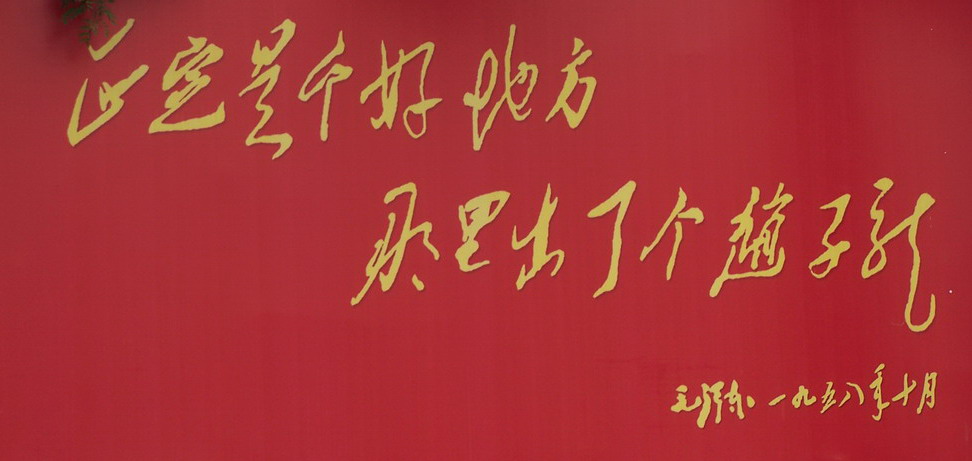 正定是个好地方
那里出了个赵子龙
毛泽东 一九五八年十月